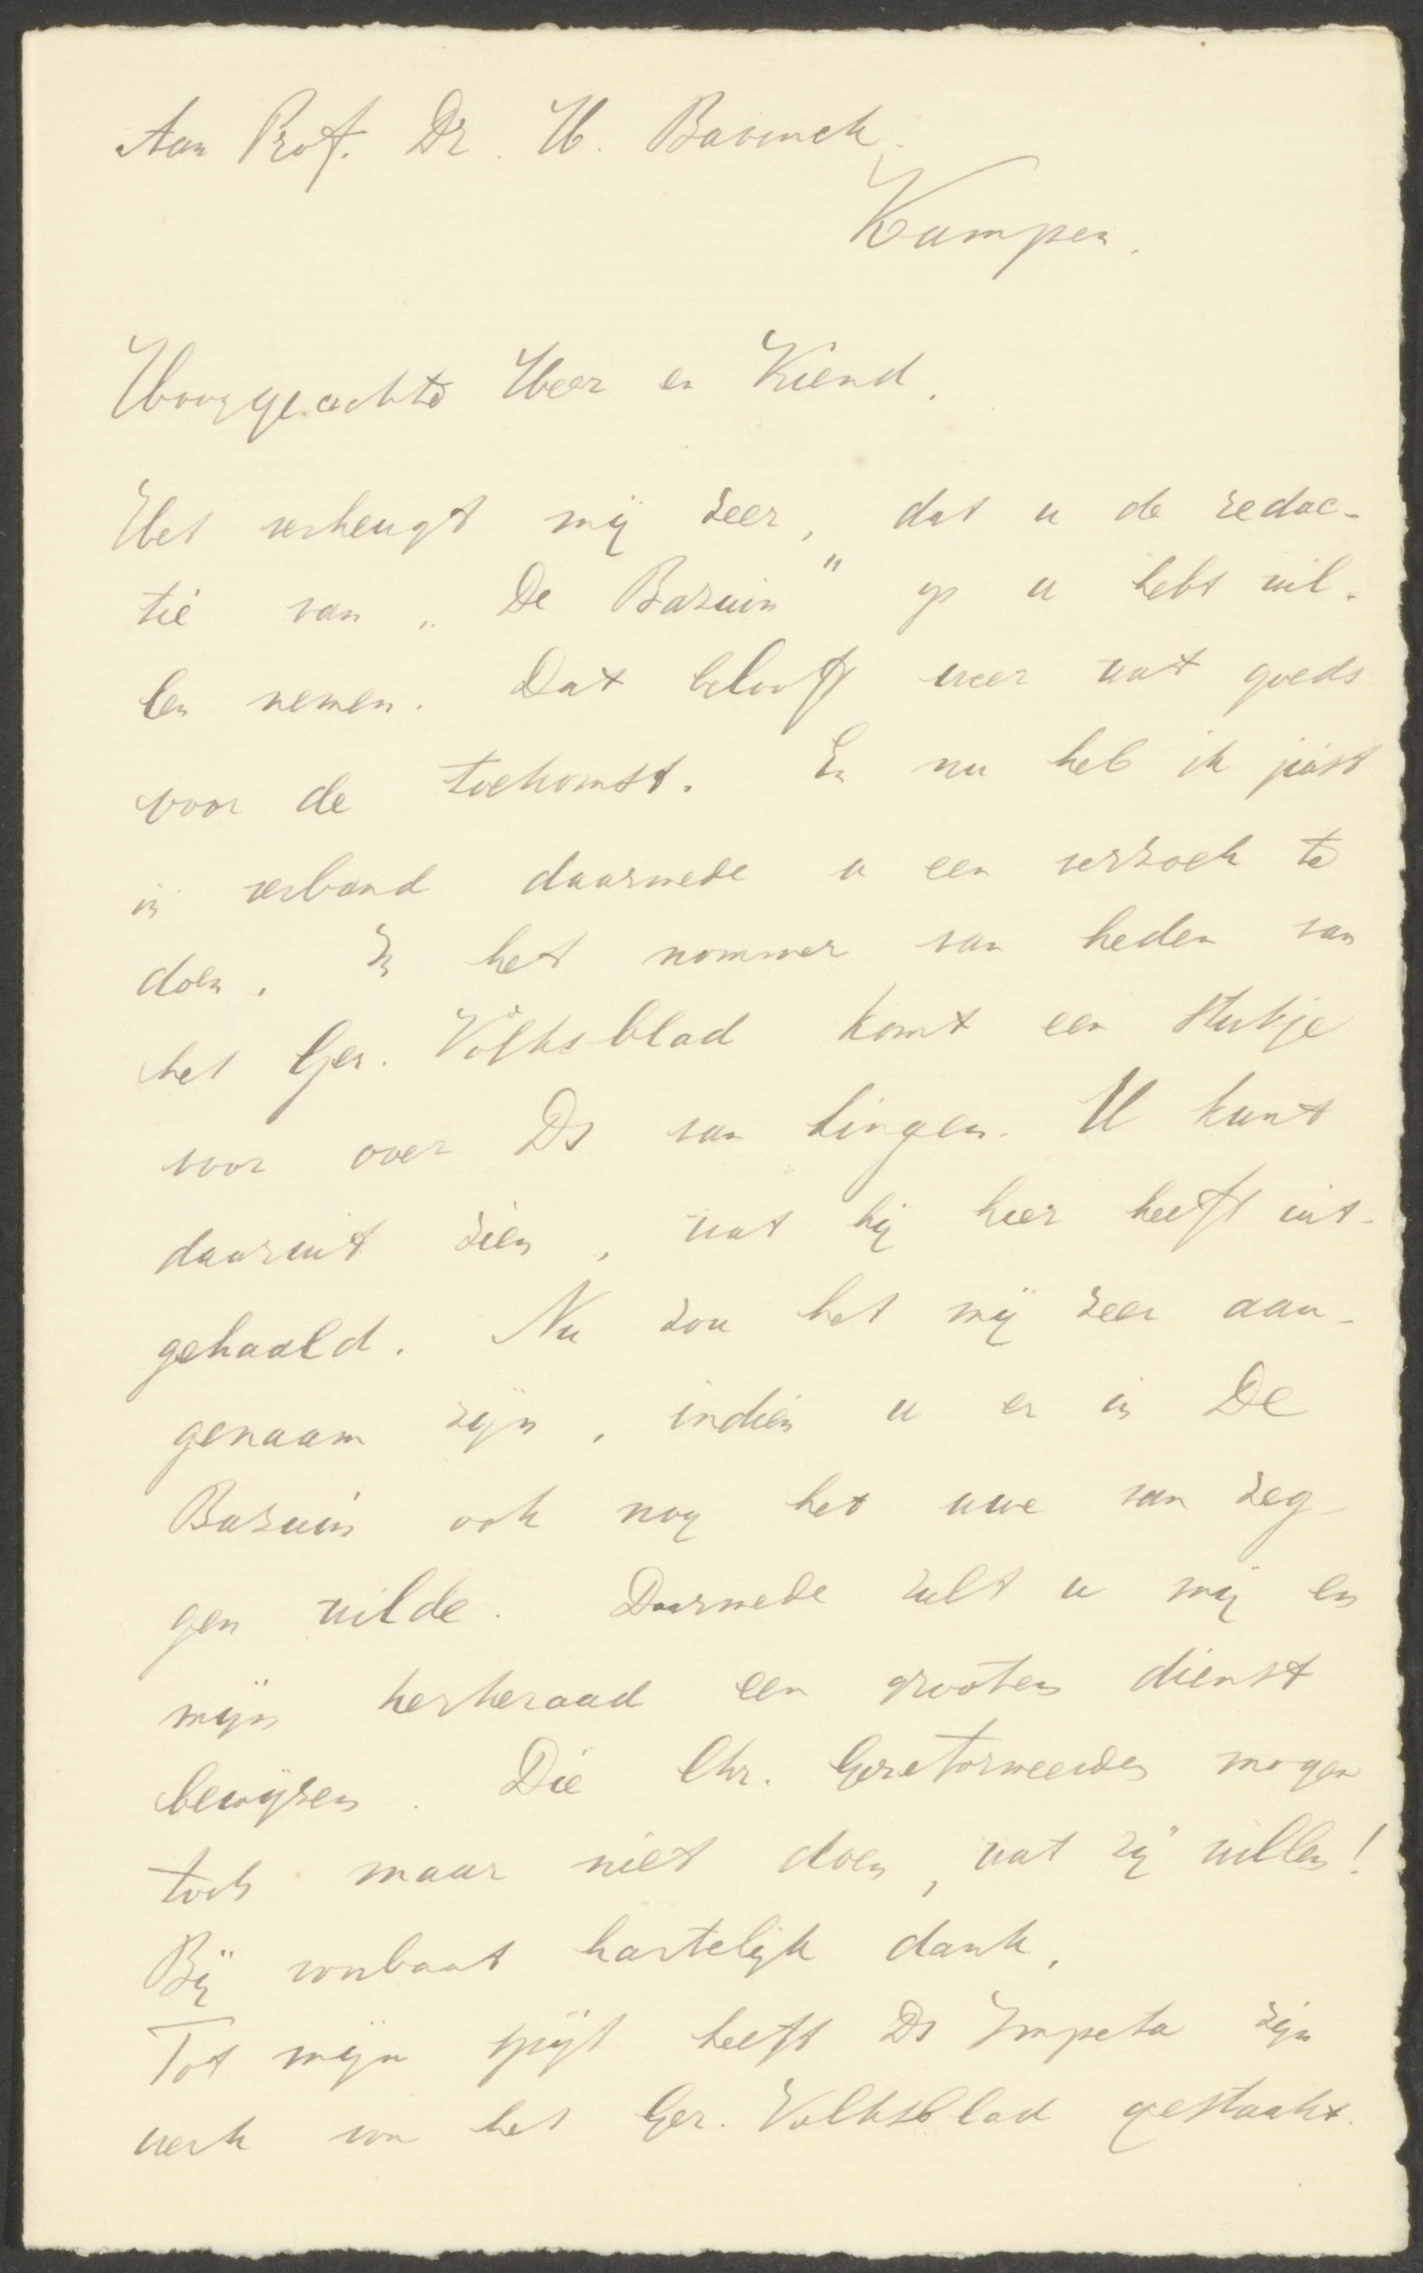 Aan Prof. Dr. H. Bavinck.
Kampen.
Hooggeachte Heer en Vriend.
Het verheugt mij zeer, dat u de redac-
tie van „De Bazuin" op u hebt wil-
len nemen. Dat belooft weer wat goeds
voor de toekomst. En nu heb ik juist
in verband daarmede u een verzoek te
doen. In het nommer van heden van
het Ger. Volksblad komt een stukje
voor over Ds van Lingen. U kunt
daaruit zien, wat hij hier heeft uit-
gehaald. Nu zou het mij zeer aan-
genaam zijn, indien u er in De
Bazuin ook nog het uwe van zeg-
gen wilde. Daarmede zult u mij en
mijn kerkeraad een grooten dienst
bewijzen. Die Chr. Gereformeerden mogen
toch maar niet doen, wat zij willen!
Bij voorbaat hartelijk dank.
Tot mijn spijt heeft Ds Impeta zijn
werk voor het Ger. Volksblad gestaakt.